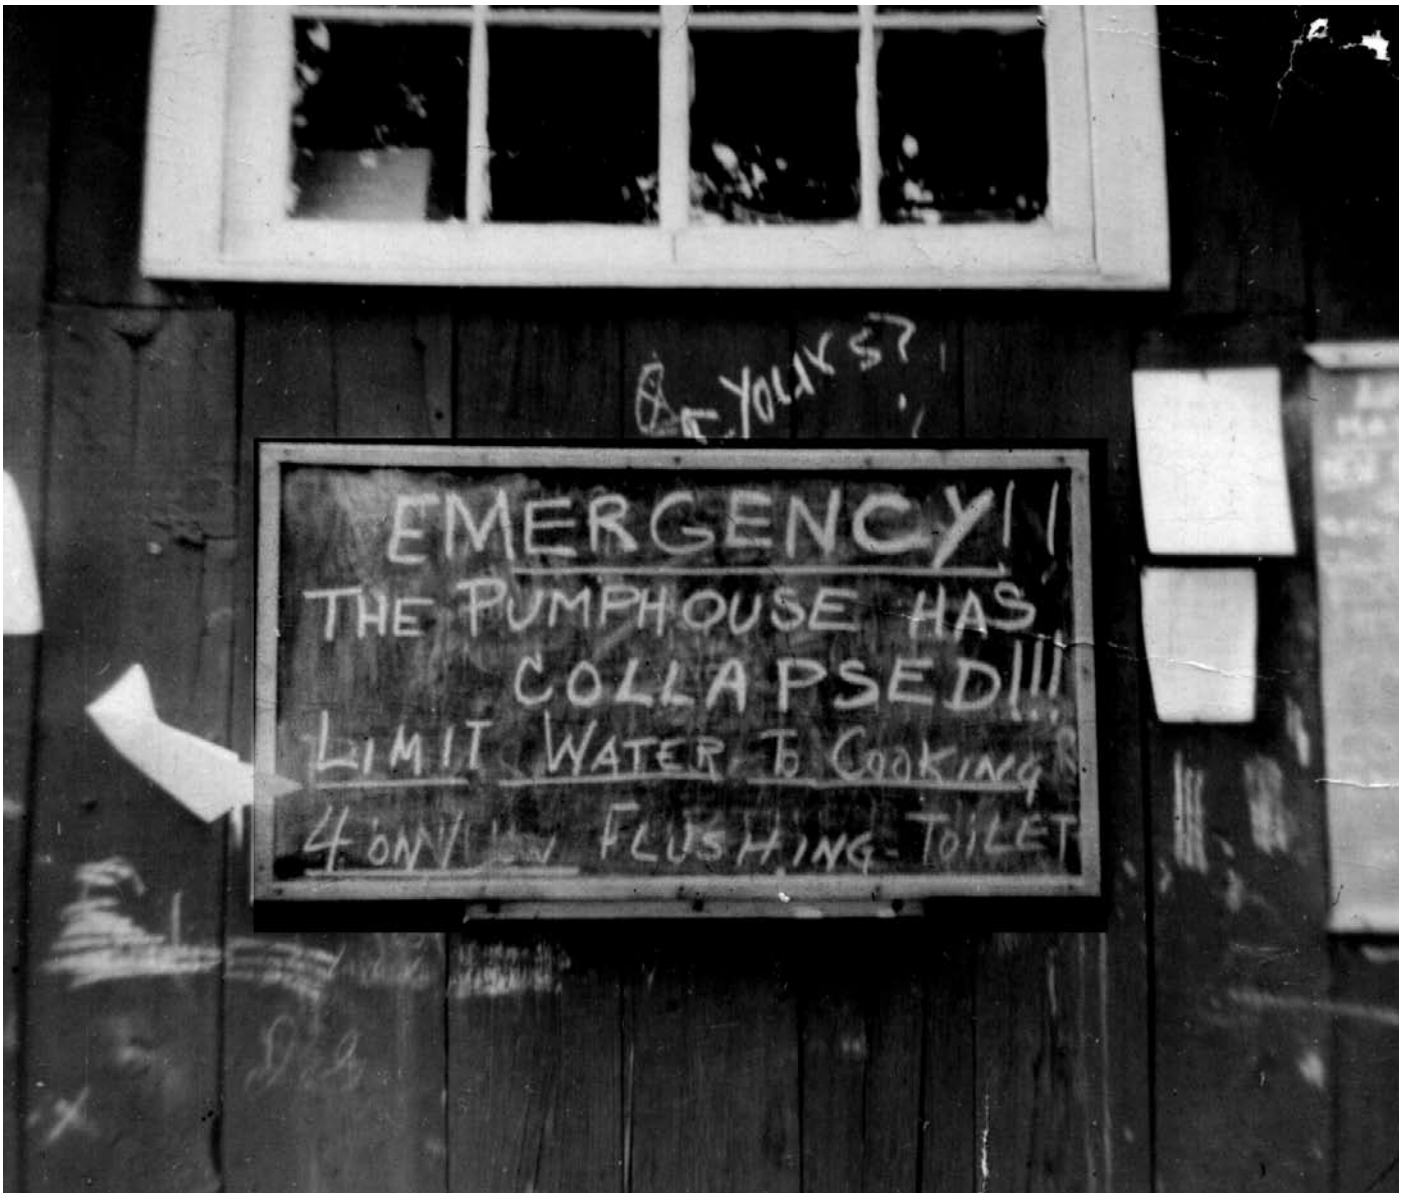 YOURS?
EMERGENCY!!
THE PUMPHOUSE HAS
COLLAPSED!!!
LIMIT WATER TO COOKING
FLUSHING TOILET